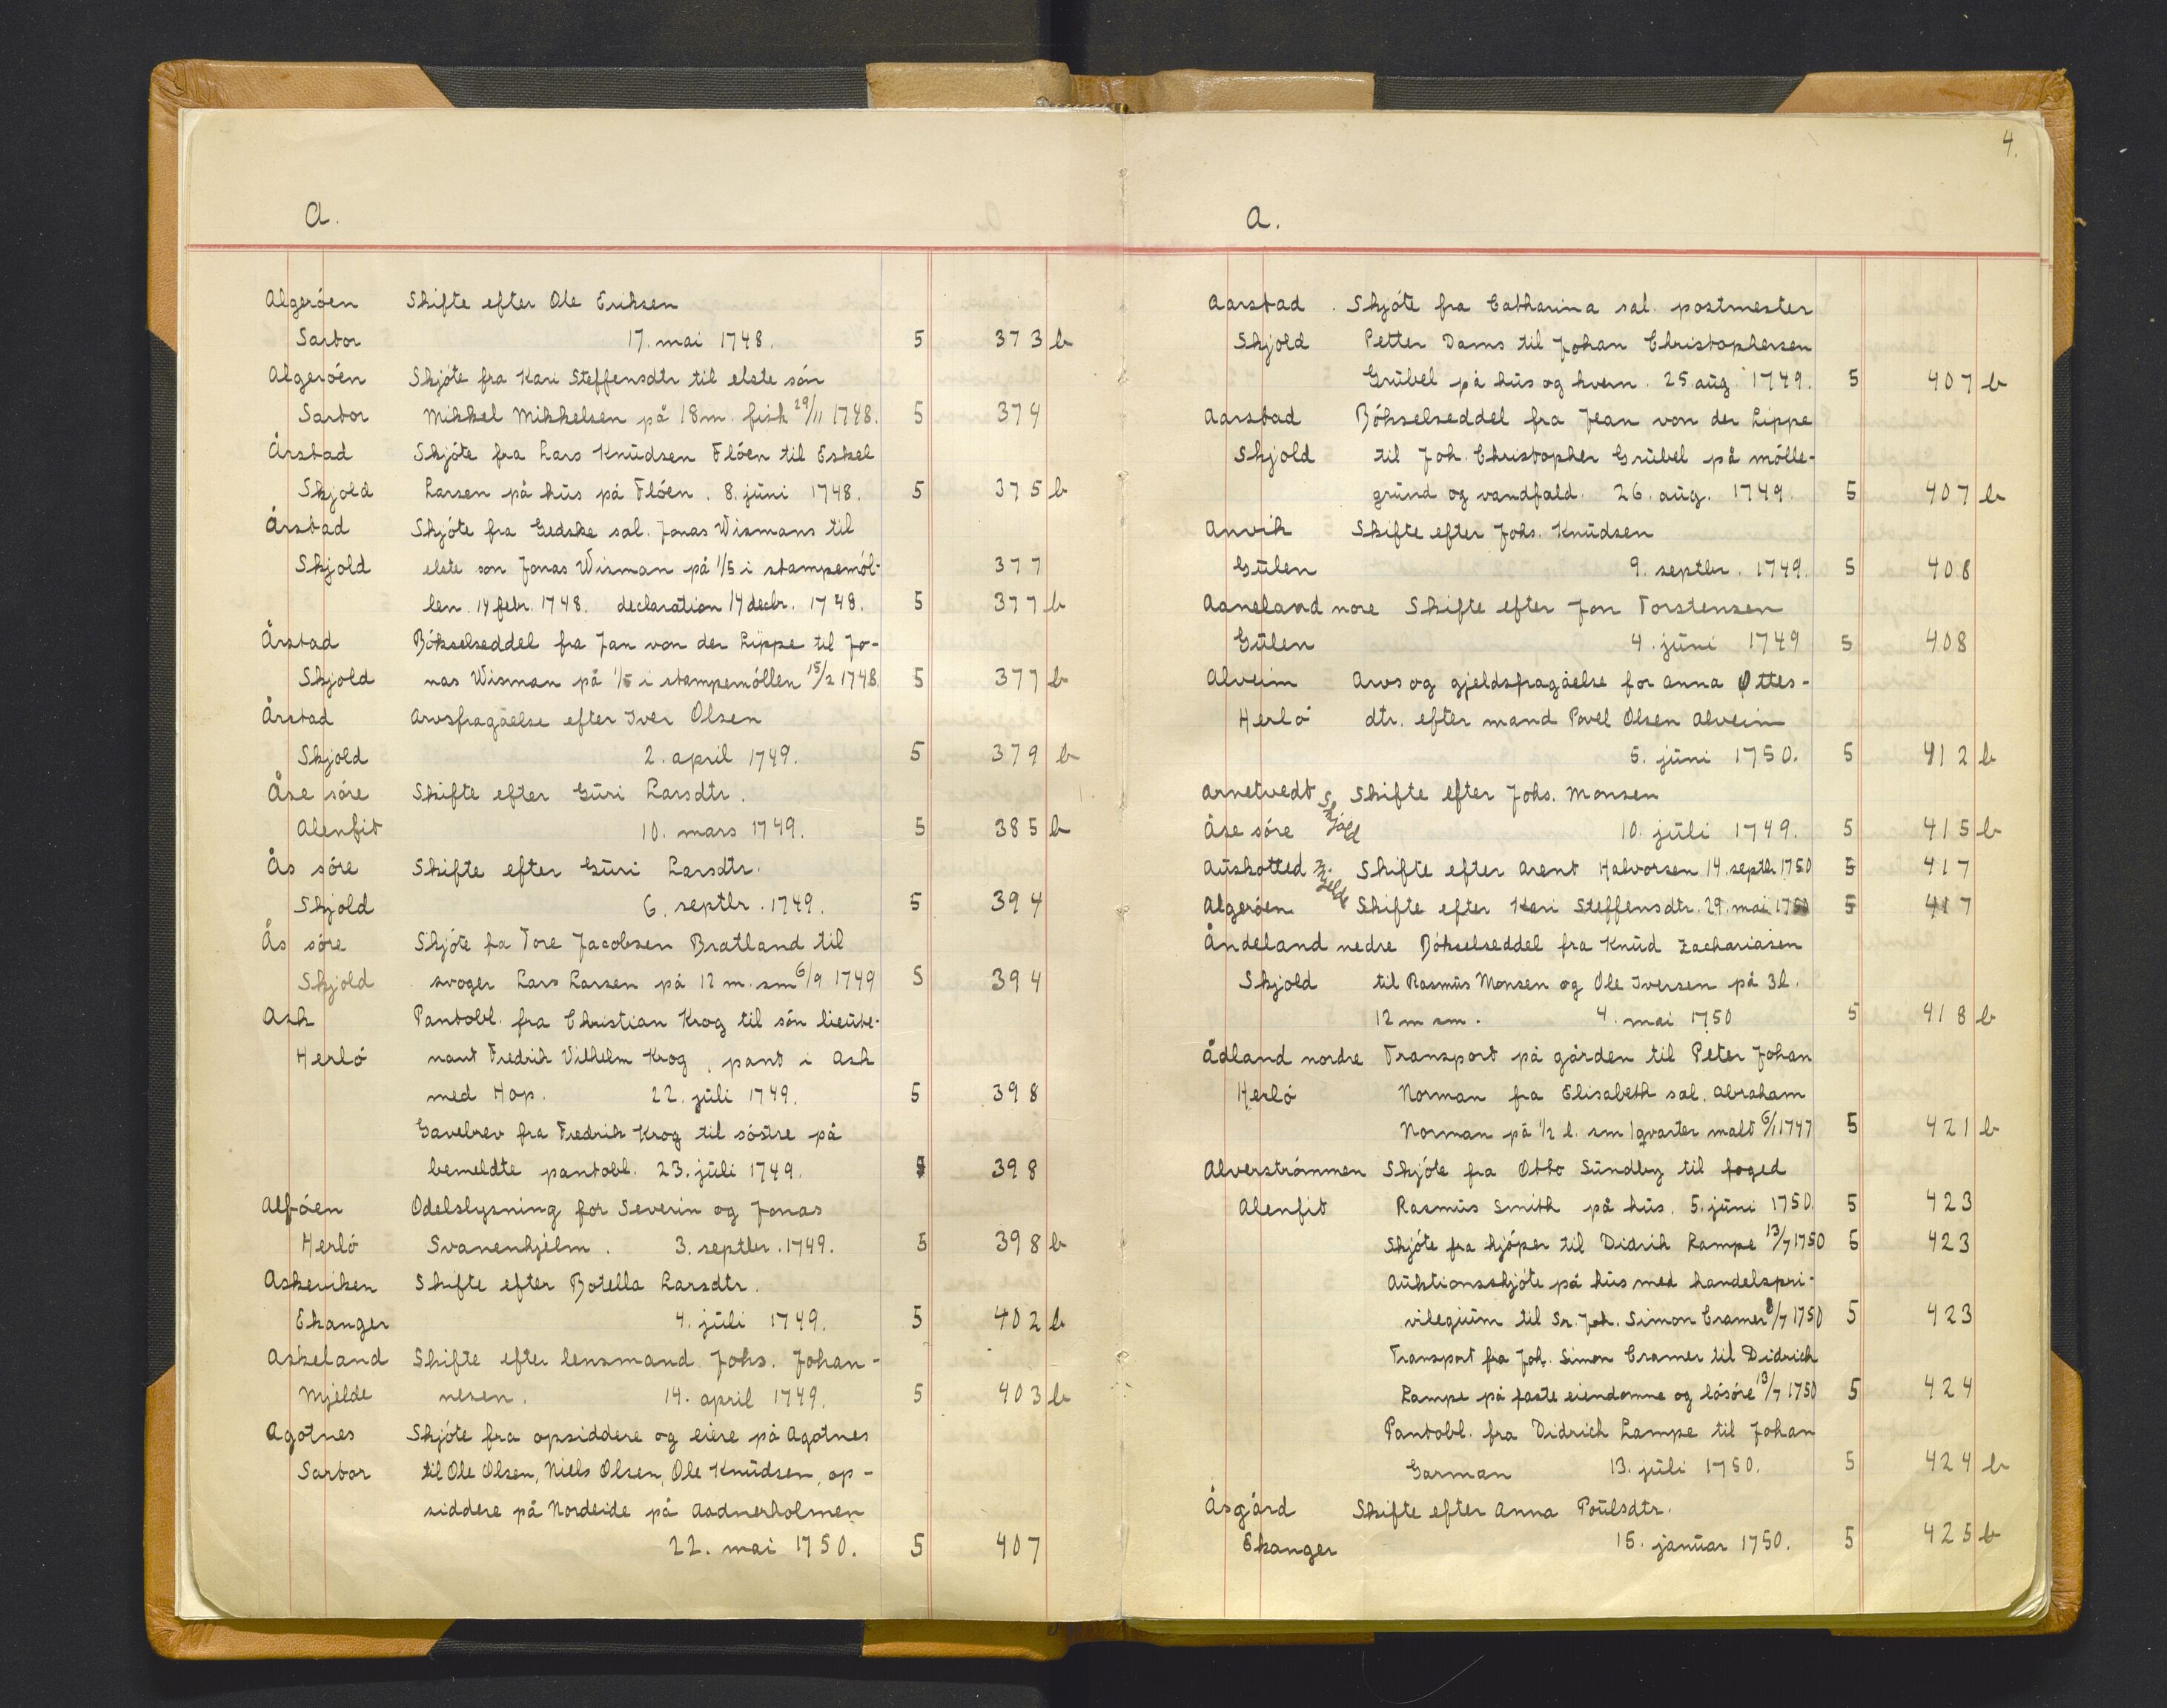 A.
Algeröen Skifte efter Ole Eriksen
Sartor 17. mai 1748. 5 373 b
Algeröen Skjöte fra Kari Steffensdtr til elste sön
Sartor Mikkel Mikkelsen på 18 m. fisk 29/11 1748. 5 374
Årstad Skjöte fra Lars Knudsen Flöen til Eskel
Skjold Larsen på hus på Flöen. 8. juni 1748. 5 375 b
Årstad Skjöte fra Gedske sal. Jonas Wismans til
Skjold elste son Jonas Wisman på 1/5 i stampemöl- 377
len. 14 febr. 1748. declaration 14 decbr. 1748. 5 377 b
Årstad Bökselseddel fra Jan von der Lippe til Jo-
Skjold nas Wisman på 1/5 i stampemöllen 15/2 1748 5 377 b
Årstad Arvsfragåelse efter Iver Olsen
Skjold 2. april 1749. 5 379 b
Åse söre Skifte efter Guri Larsdtr.
Alenfit 10. mars 1749. 5 385 b
Ås söre Skifte efter Guri Larsdtr.
Skjold 6. septbr. 1749. 5 394
Ås söre Skjöte fa Tore Jacobsen Bratland til
Skjold svoger Lars Larsen på 12 m. sm 6/9 1749 5 394
Ask Pantobl. fra Christian Krog til sön lieute-
Herlö nant Fredrik Vilhelm Krog, pant i Ask
med Hop. 22. juli 1749. 5 398
Gavebrev fra Fredrik Krog til söstre på
bemeldte pantobl. 23. juli 1749. 5 398
Alföen Odelslysning for Severin og Jonas
Herlö Svanenhjelm. 3. septbr. 1749. 5 398 b
Askeviken Skifte efter Botella Larsdtr.
Ekanger 4. juli 1749. 5 402 b
Askeland Skifte efter lensmand Johs. Johan-
Mjelde nesen. 14. april 1749. 5 403 b
Agotnes Skjöte fra opsiddere og eiere på Agotnes
Sartor til Ole Olsen, Niels Olsen, Ole Knudsen, op-
siddere på Nordeide på Aadnerholmen
22. mai 1750. 5 407
4.
A.
Aarstad Skjöte fra Catharina sal. postmester
Skjold Petter Dams til Johan Christophersen
Grübel på hus og kvern. 25. aug. 1749. 5 407 b
Aarstad Bökselseddel fra Jean von der Lippe
Skjold til Joh. Christopher Grübel på mölle-
grund og vandfald. 26. aug. 1749. 5 407 b
Anvik Skifte efter Johs. Knudsen
Gulen 9. septbr. 1749. 5 408
Aaneland nore Skifte efter Jon Torstensen
Gulen 4. juni 1749 5 408
Alveim Arvs og gjeldsfragåelse for Anna Ottes-
Herlö dtr. efter mand Povel Olsen Alveim
5. juni 1750. 5 412 b
Arnetvedt Skjold Skifte efter Johs. Monsen
Åse söre 10. juli 1749. 5 415 b
Auskotted Mjelde Skifte efter Arent Halvorsen 14. septbr 1750 5 417
Algeröen Skifte efter Kari Steffensdtr. 29. mai 1750 5 417
Åndeland nedre Bökselseddel fra Knud Zachariasen
Skjold til Rasmus Monsen og Ole Iversen på 3 l.
12 m sm. 4. mai 1750 5 418 b
Ådland nordre Transport på gården til Peter Johan
Herlö Norman fra Elisabeth sal. Abraham
Norman på 1/2 l. sm 1 qvarter malt 6/1 1747 5 421 b
Alverströmmen Skjöte fra Otto Sundby til foged
Alenfit Rasmus Smith på hus. 5. juni 1750. 5 423
Skjöte fra kjöper til Didrik Lampe 13/7 1750 5 423
Auktionsskjöte på hus med handelspri-
vilegium til Sr. Joh. Simon Cramer 8/7 1750 5 423
Transport fra Joh. Simon Cramer til Didrich
Lampe på faste eiendomme og lösöre 13/7 1750 5 424
Pantobl. fra Didrich Lampe til Johan
Garman 13. juli 1750. 5 424 b
Åsgård Skifte efter Anna Poulsdtr.
Ekanger 15. januar 1750. 5 425 b